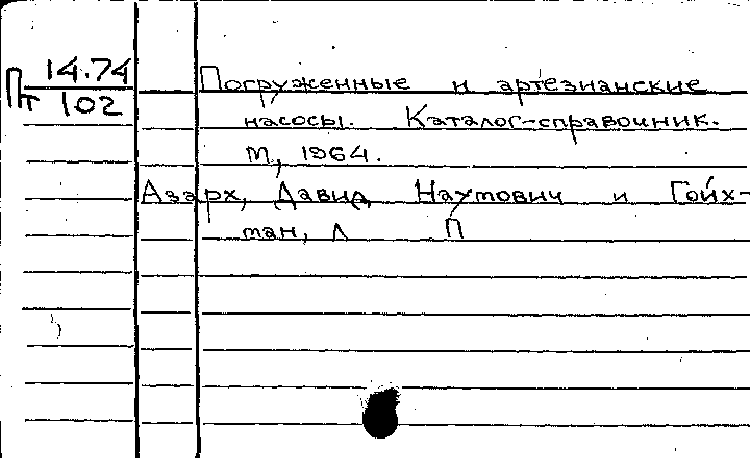 Пт 14.74
102
Погруженные и артезианские
насосы. Каталог-справочник.
М, 1964.
Азарх, Давид Наумович и Гойх-
ман, Л П